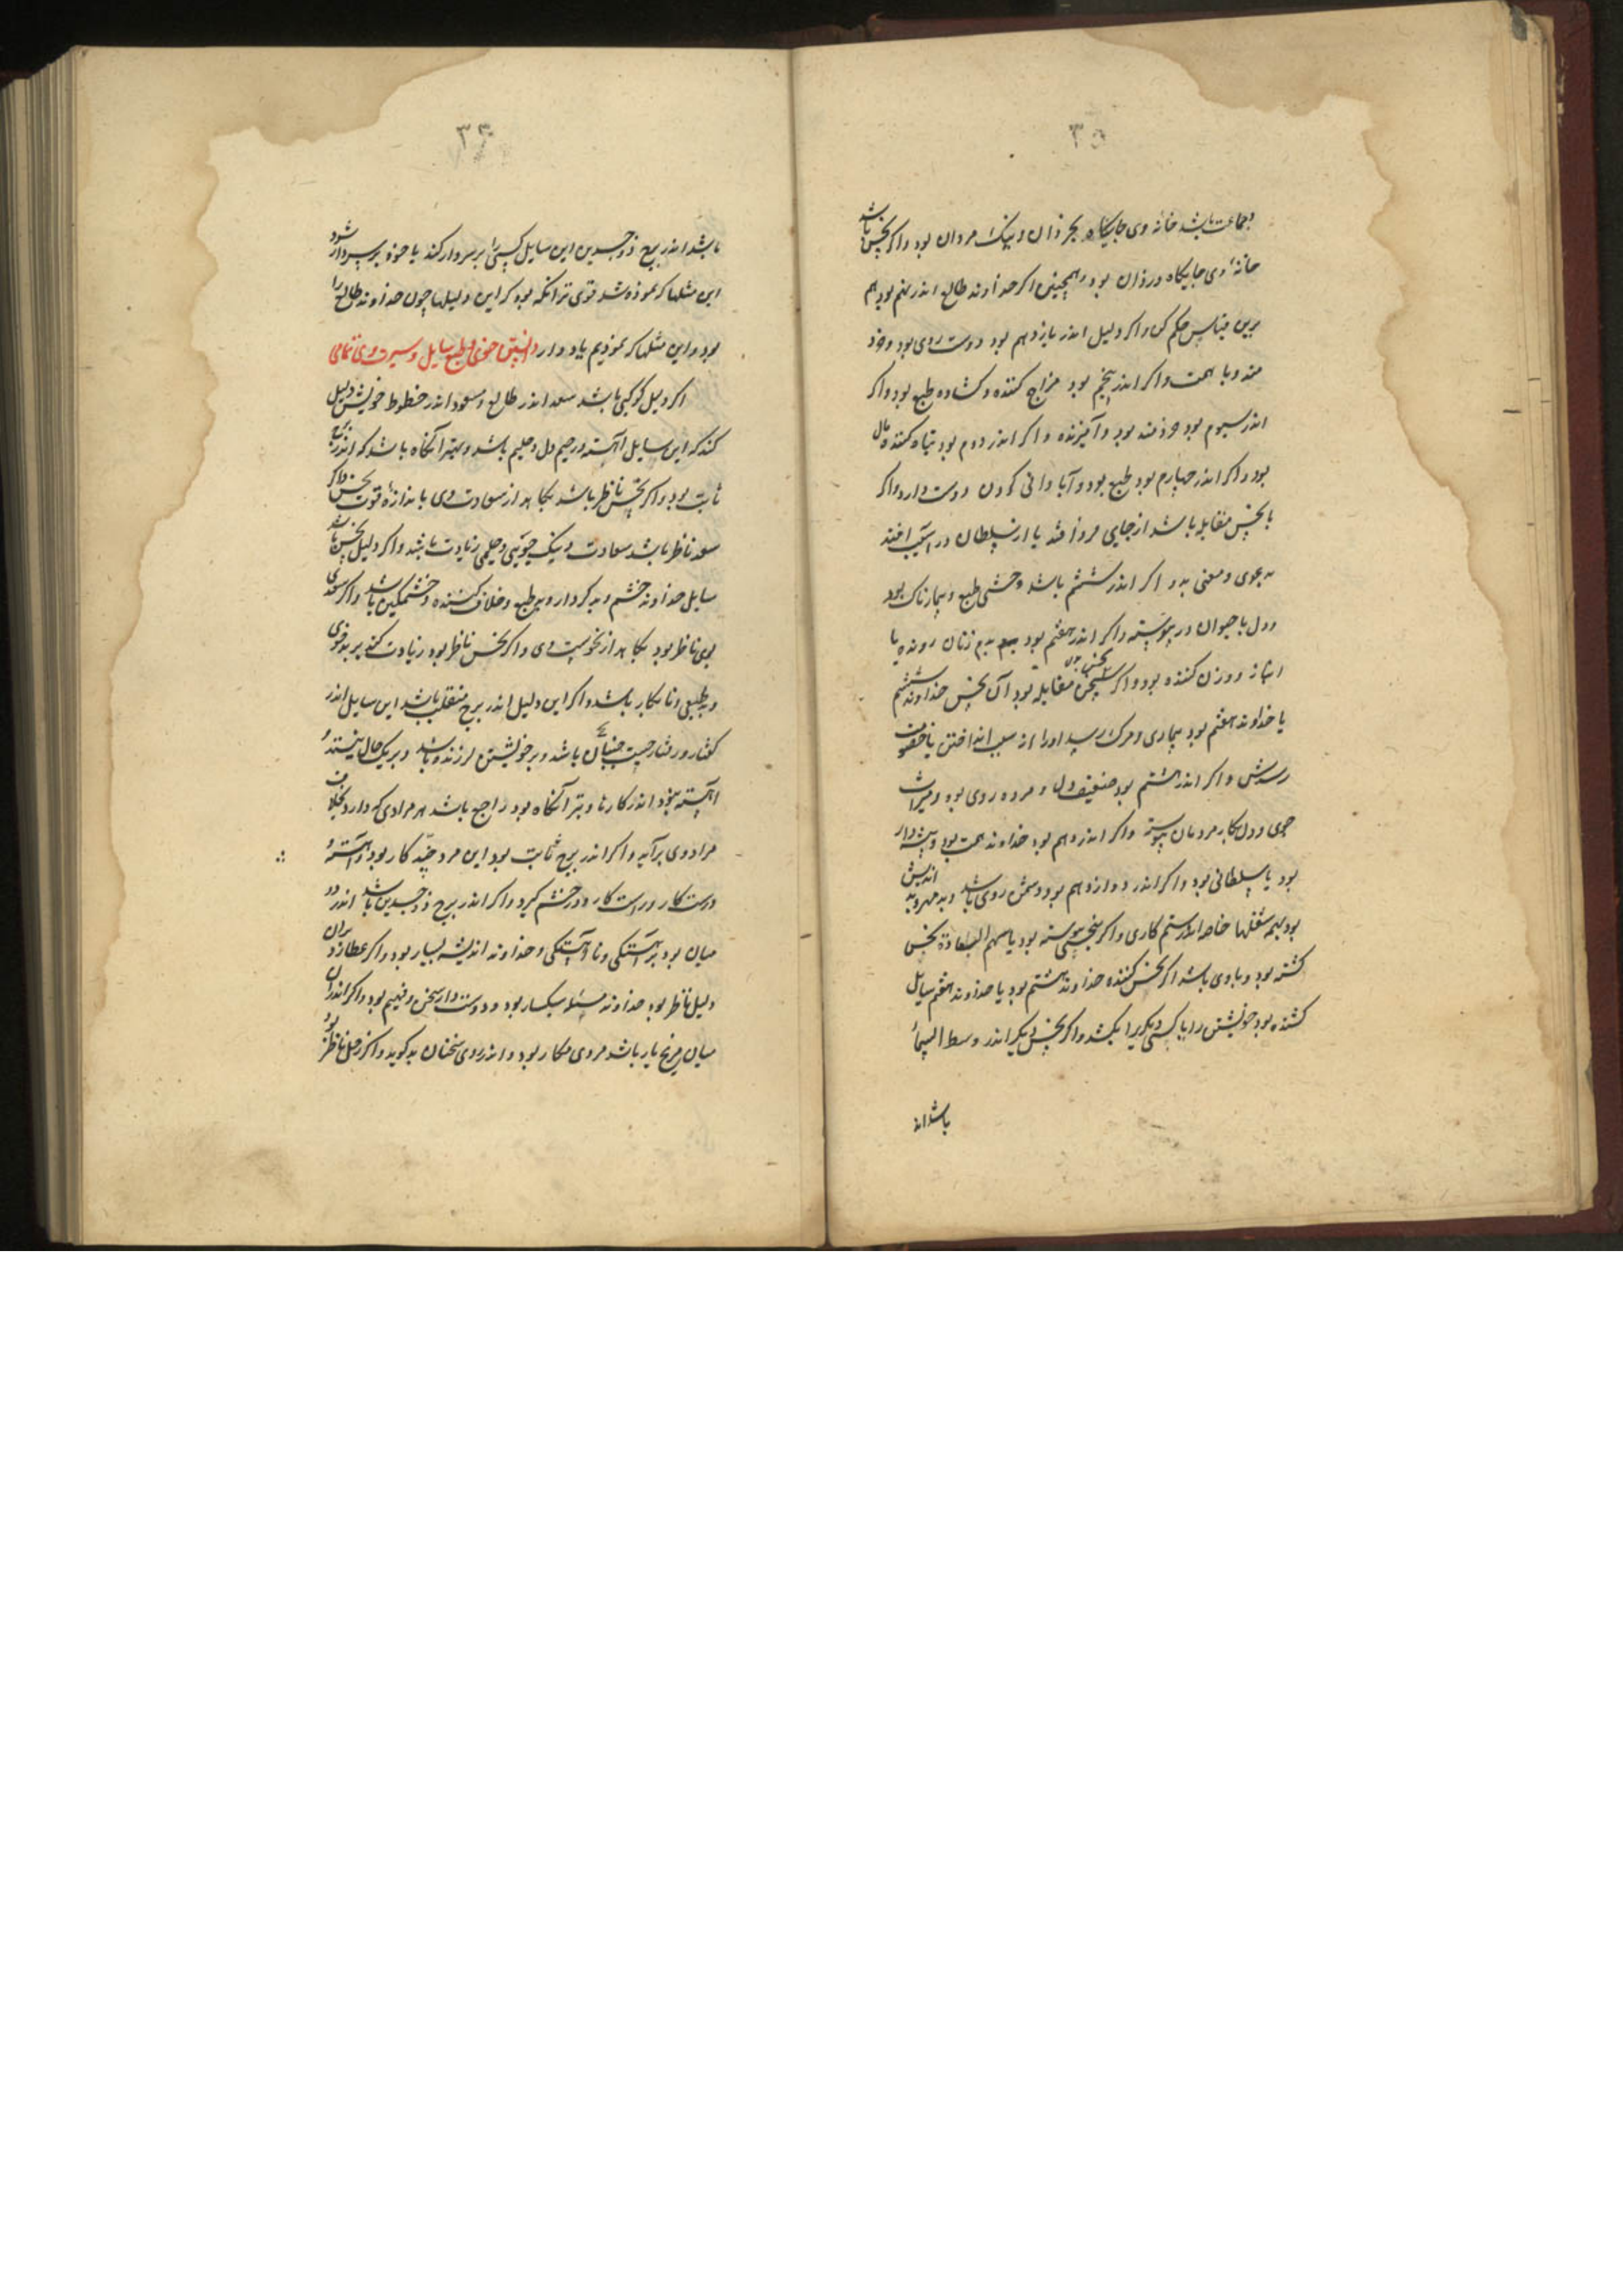 ۳۵
وجماعت باشد خانه وی جایگاه بخردان ونیک مردان بود واگر نحس باشد
خانهٔ وی جایگاه دزدان بود وهمچنین اگر خداوند طالع اندر نهم بود هم
برین قیاس حکم کن واگر دلیل اندر یازدهم بود دوست روی بود وخرد
مند وبا همت واگر اندر پنجم بود مزاح کننده وگشاده طبع بود واگر
اندر سیوم بود خردمند بود وآمیزنده واگر اندر دوم بود تباه کننده مال
بود واگر اندر چهارم بود طبع بود وآبادانی کردن دوست دارد واگر
با نحس مقابله باشد از جایی فرو افتد یا از سلطان در آسیب افتد
بدعوی ومعنی بد و اگر اندر ششم باشد وحشی طبع وبیمارناک بود
ودل با حیوان در پیوسته واگر اندر هفتم بود زنان رونده یا
انباز وزن کننده بود واگر مقابله بود آن نحس خداوند ششم
یا خداوند هفتم بود بیماری ومرگ رسد اورا از سبب انداختن یا خصومت
رسدش واگر اندر هشتم بود ضعیف دل ومرده روی بود ومیراث
جوی ودل بکار مردمان پیوسته واگر اندر دهم بود خداوند همت بود وپیشه دار
بود یا سلطانی بود واگر اندر دوازدهم بود دشمن روی باشد وبد مهر وبد اندیش
بود بهمه شغلها خاصه اندر ستم کاری واگر بنحسی پیوسته بود یا سهم السعادة نحس
گشته بود وباوی باشد اگر نحس کننده خداوند هشتم بود یا خداوند هفتم سایل
کشنده بود خویشتن را یا کسی دیگر را بکشد واگر نحس دیگر اندر وسط السما
باشد اند
۳۶
باشد اندر برج ذوجسدین این سایل کسی را بر سر دار کند یا خود بر سر دار شود
این مثلها که نموده شد قوی تر آنگه بود که این دلیلها چون خداوند طالع را
بود واین مثلها که نمودیم یاد دار دانستن خوی وطبع سایل وسیرت وی تمامی
اگر دلیل کوکبی باشد سعد اندر طالع ومسعود اندر حظوظ خویش دلیل
کند که این سایل آهسته ورحیم دل وحلیم باشد وبهتر آنگاه باشد که اندر برج
ثابت بود واگر نحس ناظر باشد بکاهد از سعادت وی باندازهٔ قوت نحس واگر
سعد ناظر باشد سعادت ونیک خویی وحلمی زیادت باشد واگر دلیل نحس باشد
سایل خداوند خشم وبد کردار وبی طبع وخلاف کننده وخشمگین باشد واگر سعدی
بوی ناظر بود بکاهد از نحوست وی واگر نحس ناظر بود زیادت کند بر بدخوی
وبد طبعی ونابکار باشد واگر این دلیل اندر برج منقلب باشد این سایل اندر
گفتار ورفتار چست جنبان باشد وبر خویشتن لرزنده باشد وبر یک حال نیستد و
آهسته نبود اندر کارها وبتر آنگاه بود راجع باشد هر مرادی که دارد بخلاف
مراد وی برآید واگر اندر برج ثابت بود این مرد جید کار بود وآهسته و
درست کار وراست کار ودر خشم گیرد واگر اندر برج ذوجسدین باشد اندر
میان بود بر آهستگی ونا آهستگی وخداوند اندیشه بسیار بود واگر عطارد بران
دلیل ناظر بود خداوند مسئله سبکسار بود ودوست دار سخن وفهیم بود واگر اندران
میان مریخ یار باشد مردی مکار بود واندر روی سخنان بد گوید واگر زحل ناظر بود